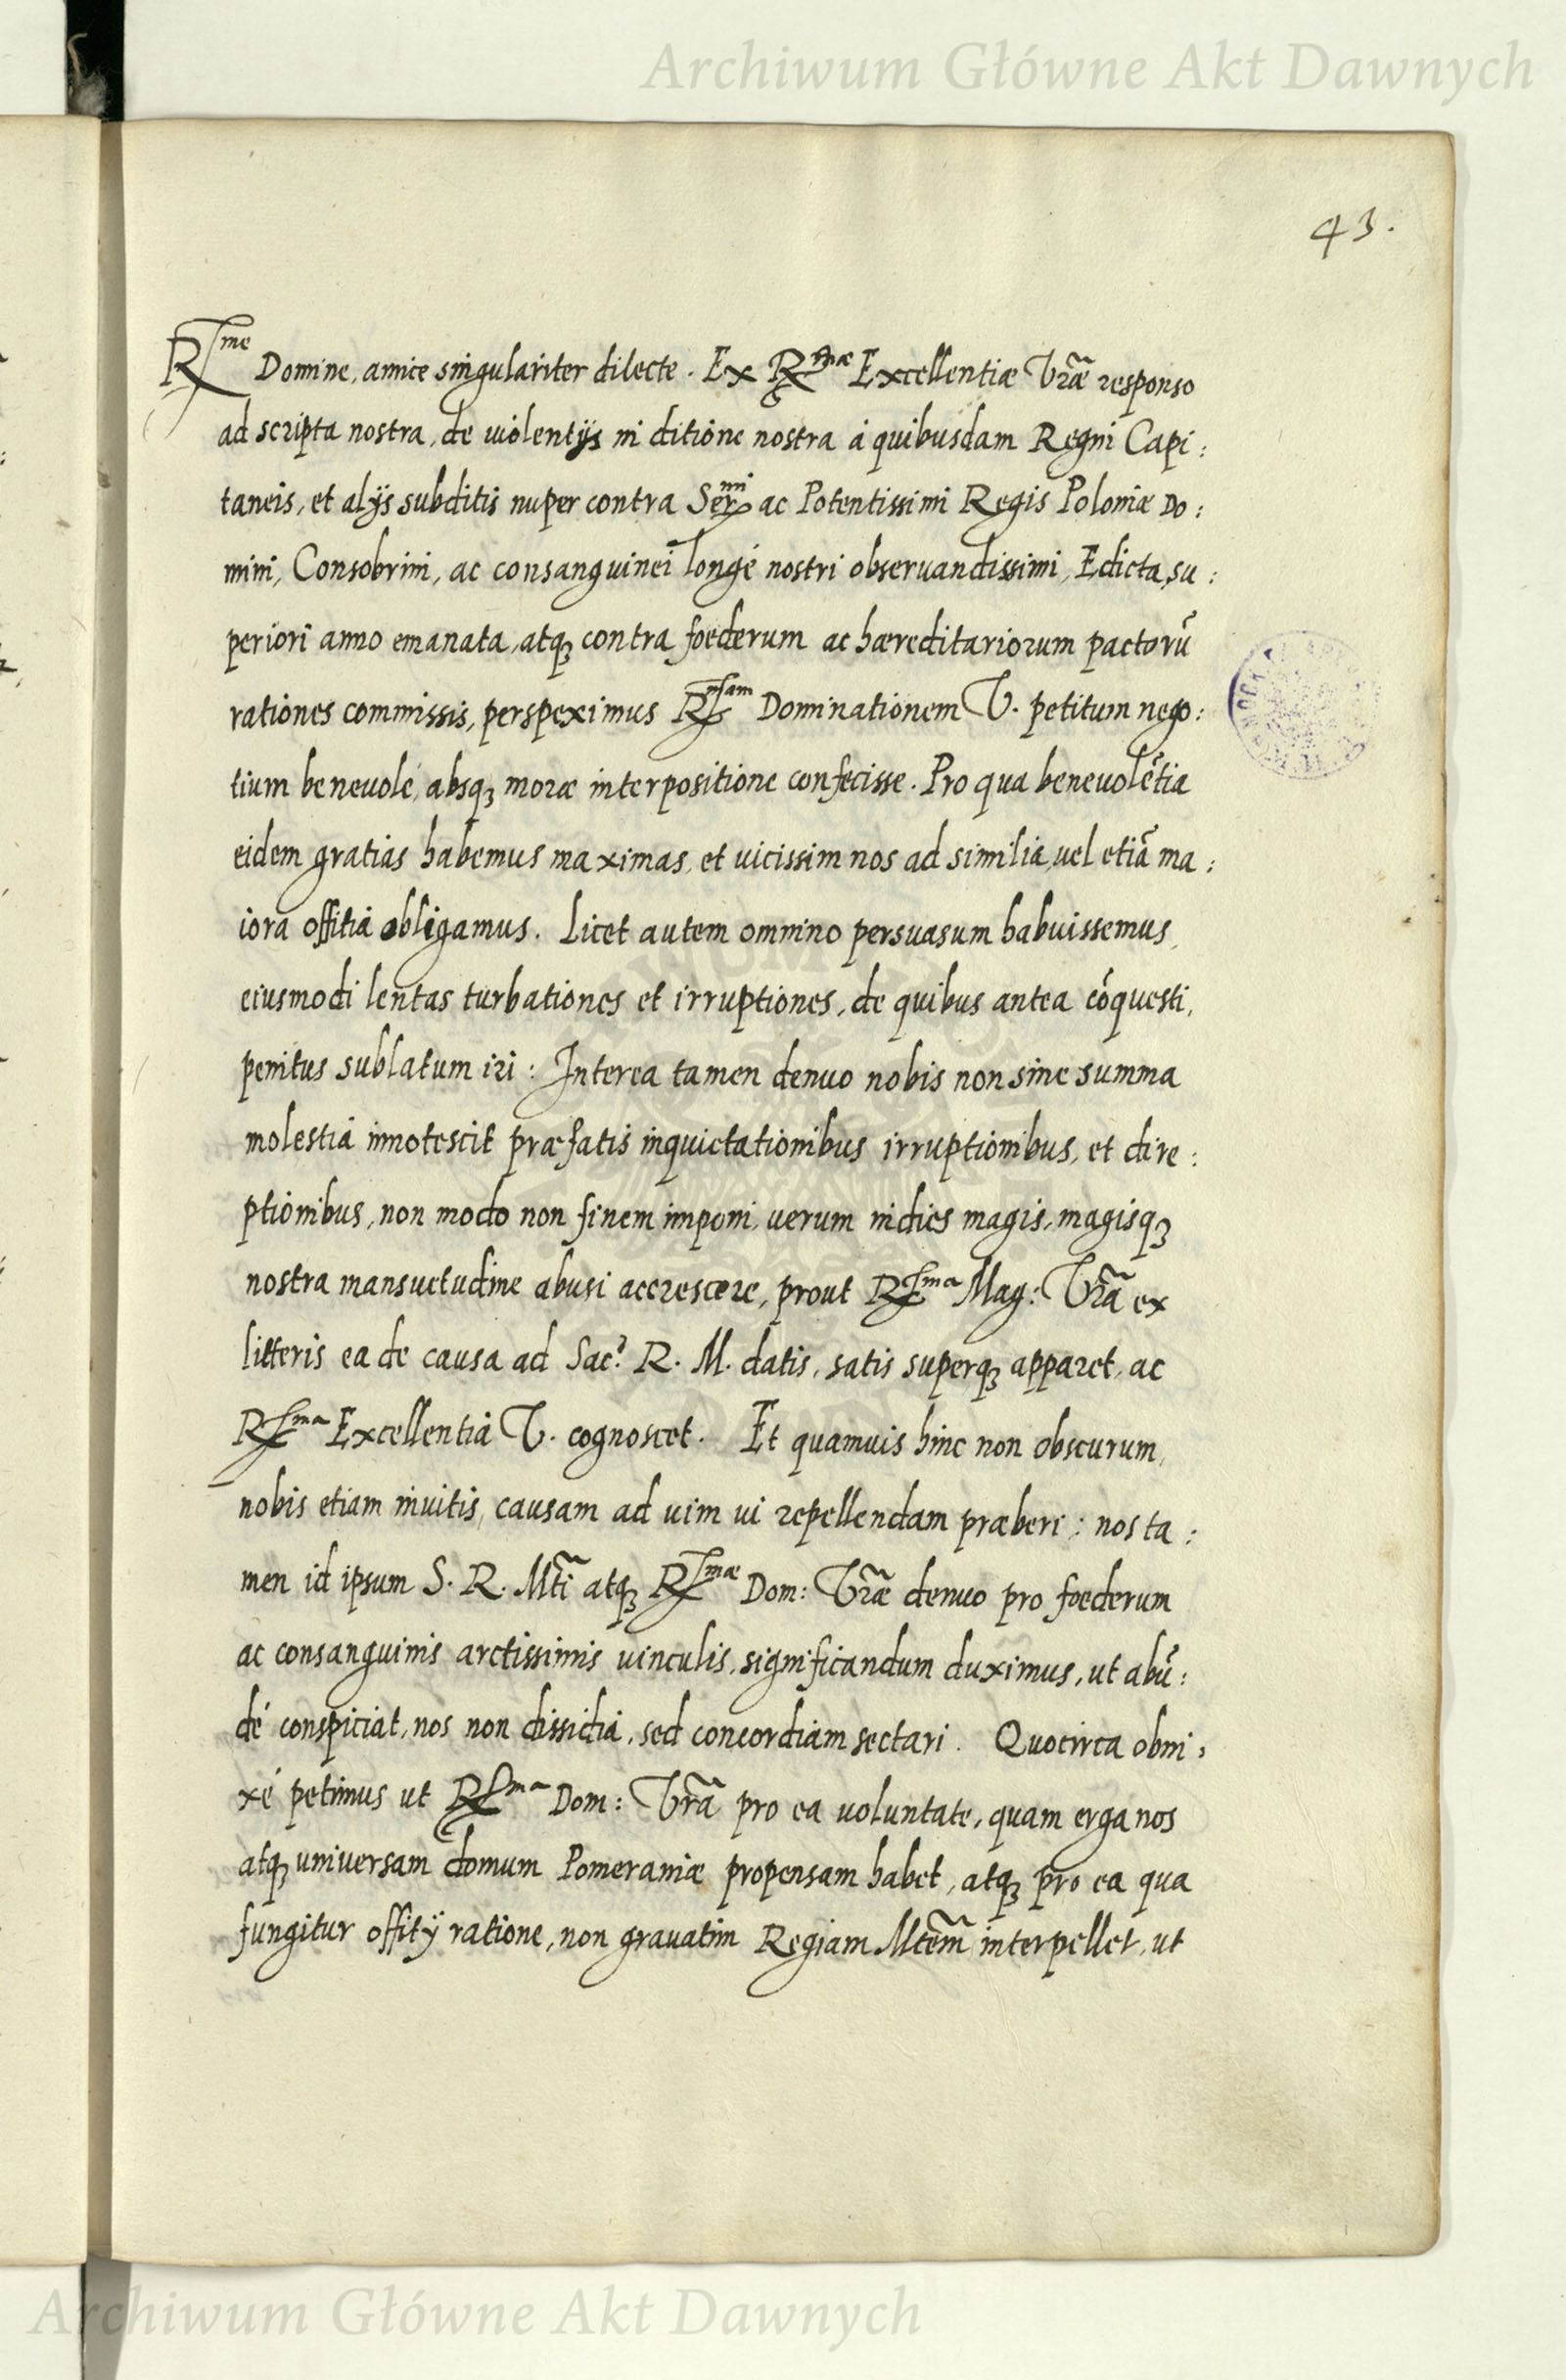 Archiwum Główne Akt Dawnych
43.
R^me Domine, amice singulariter dilecte. Ex R^mæ Excellentiæ Vr̃æ responso
ad scripta nostra, de uiolentijs in ditione nostra á quibusdam Regni Capi:
taneis, et alijs subditis nuper contra Ser^mi ac Potentissimi Regis Poloniæ Do:
mini, Consobrini, ac consanguinei longé nostri obseruandissimi, Edicta, su:
periori anno emanata, atq₃ contra foederum ac hæreditariorum pactorũ
rationes commissis, perspeximus R^mam Dominationem V. petitum nego:
tium beneuolé, absq₃ moræ interpositione confecisse. Pro qua beneuolẽtia
eidem gratias habemus maximas, et uicissim nos ad similia, uel etiã ma:
iora offitia obligamus. Licet autem omnino persuasum habuissemus,
eiusmodi lentas turbationes et irruptiones, de quibus antea cõquesti,
penitus sublatum iri: Interea tamen denuo nobis non sine summa
molestia innotescit præfatis inquietationibus irruptionibus, et dire:
ptionibus, non modo non finem imponi, uerum indies magis, magisq₃
nostra mansuetudine abusi accrescere, prout R^ma Mag: Vr̃a ex
litteris ea de causa ad Sac? R. M. datis, satis superq₃ apparet, ac
R^ma Excellentia V. cognoscet. Et quamuis hinc non obscurum,
nobis etiam inuitis, causam ad uim ui repellendam præberi: nos ta:
men id ipsum S. R. Mt̃i atq₃ R^mæ Dom: Vr̃æ denuo pro foederum
ac consanguinis arctissimis uinculis, significandum duximus, ut abũ:
dé conspiciat, nos non dissidia, sed concordiam sectari. Quocirca obni:
xé petimus ut R^ma Dom: Vr̃a pro ea uoluntate, quam erga nos
atq₃ uniuersam domum Pomeraniæ propensam habet, atq₃ pro ea qua
fungitur offitij ratione, non grauatim Regiam Mtẽm interpellet, ut
Archiwum Główne Akt Dawnych